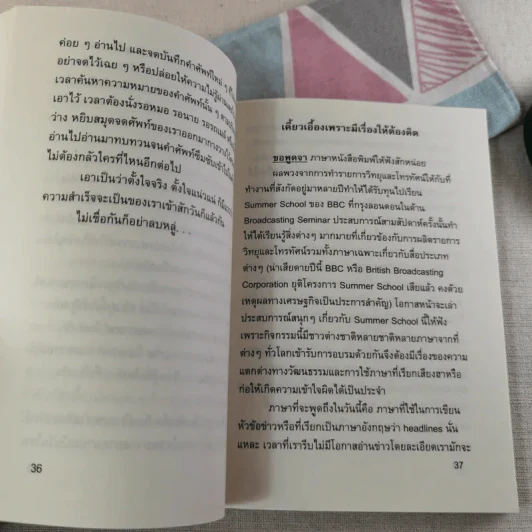 ค่อย ๆ อ่านไป และจดบันทึกคำศัพท์ใหม่ ๆ
อย่าจดไว้เฉย ๆ หรือปล่อยให้ความไม่รู้
เวลาค้นหาความหมายของคำศัพท์นั้น ๆ
เอาไว้ เวลาต้องนั่งรอหมอ รอนาย รอรถเมล์
ว่าง หยิบสมุดจดคำศัพท์ของเราออกมากางวาง
อ่านไปอ่านมาทบทวนจนคำศัพท์ซึมซับเข้า
ไม่ต้องกลัวใครที่ไหนอีกต่อไป
เอาเป็นว่าตั้งใจจริง ตั้งใจแน่วแน่
ความสำเร็จจะเป็นของเราเข้าสักวันก็แล้วกัน
ไม่เชื่อกันก็อย่าลบหลู่. . .
36
เคี้ยวเอื้องเพราะมีเรื่องให้ต้องคิด
ขอพูดจา ภาษาหนังสือพิมพ์ให้ฟังสักหน่อย
ผลพวงจากการทำรายการวิทยุและโทรทัศน์ให้กับที่
ทำงานที่สังกัดอยู่มาหลายปีทำให้ได้รับทุนไปเรียน
Summer School ของ BBC ที่กรุงลอนดอนในด้าน
Broadcasting Seminar ประสบการณ์สามสัปดาห์ครั้งนั้นทำ
ให้ได้เรียนรู้สิ่งต่างๆ มากมายที่เกี่ยวข้องกับการผลิตรายการ
วิทยุและโทรทัศน์รวมทั้งภาษาเฉพาะเกี่ยวกับสื่อประเภท
ต่างๆ (น่าเสียดายปีนี้ BBC หรือ British Broadcasting
Corporation ยุติโครงการ Summer School เสียแล้ว คงด้วย
เหตุผลทางเศรษฐกิจเป็นประการสำคัญ) โอกาสหน้าจะเล่า
ประสบการณ์สนุกๆ เกี่ยวกับ Summer School นี้ให้ฟัง
เพราะกิจกรรมนี้มีชาวต่างชาติหลายชาติหลายภาษาจากที่
ต่างๆ ทั่วโลกเข้ารับการอบรมด้วยกันจึงต้องมีเรื่องของความ
แตกต่างทางวัฒนธรรมและการใช้ภาษาที่เรียกเสียงฮาหรือ
ก่อให้เกิดความเข้าใจผิดได้เป็นประจำ
ภาษาที่จะพูดถึงในวันนี้คือ ภาษาที่ใช้ในการเขียน
หัวข้อข่าวหรือที่เรียกเป็นภาษาอังกฤษว่า headlines นั่น
แหละ เวลาที่เรารีบไม่มีโอกาสอ่านข่าวโดยละเอียดเรามักจะ
37